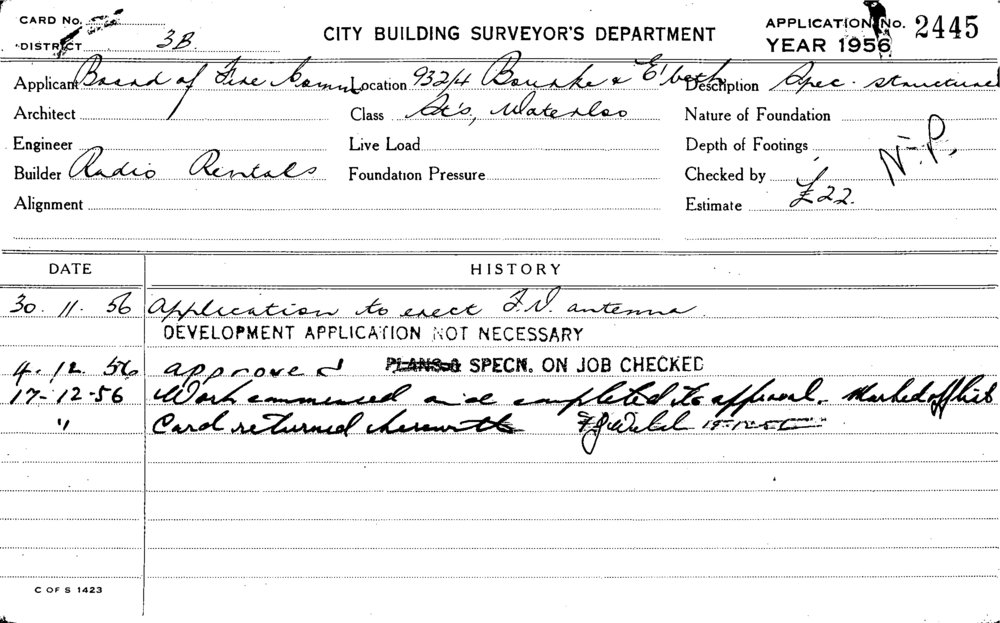 CARD No.
DISTRICT 3B
CITY BUILDING SURVEYOR'S DEPARTMENT
APPLICATION No. 2445
YEAR 1956
Applicant Board of Fire Comm Location 932/4 Bourke & E'beth Description Spec. structural
Architect Class Sts, Waterloo Nature of Foundation
Engineer Live Load Depth of Footings
N.P.
Builder Radio Rentals Foundation Pressure Checked by
Alignment Estimate £22.
DATE HISTORY
30. 11. 56 Application to erect T.V. antenna
DEVELOPMENT APPLICATION NOT NECESSARY
4. 12. 56 approved PLANS & SPECN. ON JOB CHECKED
17-12-56 Work commenced and completed to approval. Marked off list
" Card returned herewith
C OF S 1423